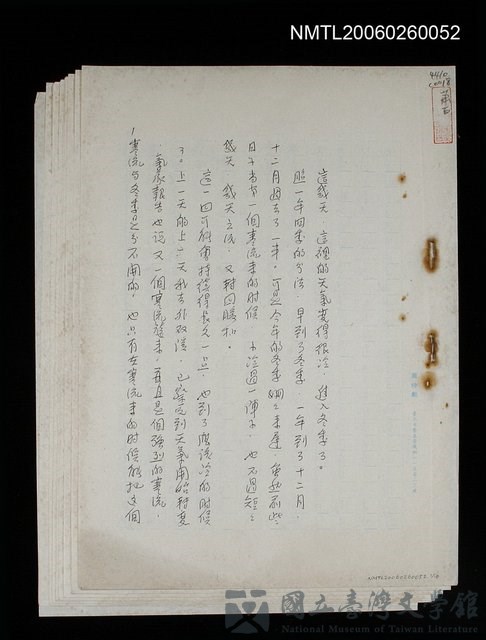 NMTL20060260052
這幾天，這裡的天氣變得很冷，進入冬季了。
照一年四季的分法，早到了冬季，一年到了十二月，
十二月過去了一半，可是今年的冬季姍姍來遲，雖然前些
日子也有一個寒流來的时候，卡冷過一陣子，也不過短短
幾天，幾天之後，又轉回暖和。
這一回可能會持續得長久一点，也到了應該冷的时候
了。上一天的上一天我去外頭，已感受到天氣開始轉變
氣象報告也說又一個寒流襲來，並且是個強烈的寒流，
寒流与冬季是分不開的，也只有在寒流來的时候能把這個
NMTL20060260052
國立臺灣文學館
National Museum of Taiwan Literature